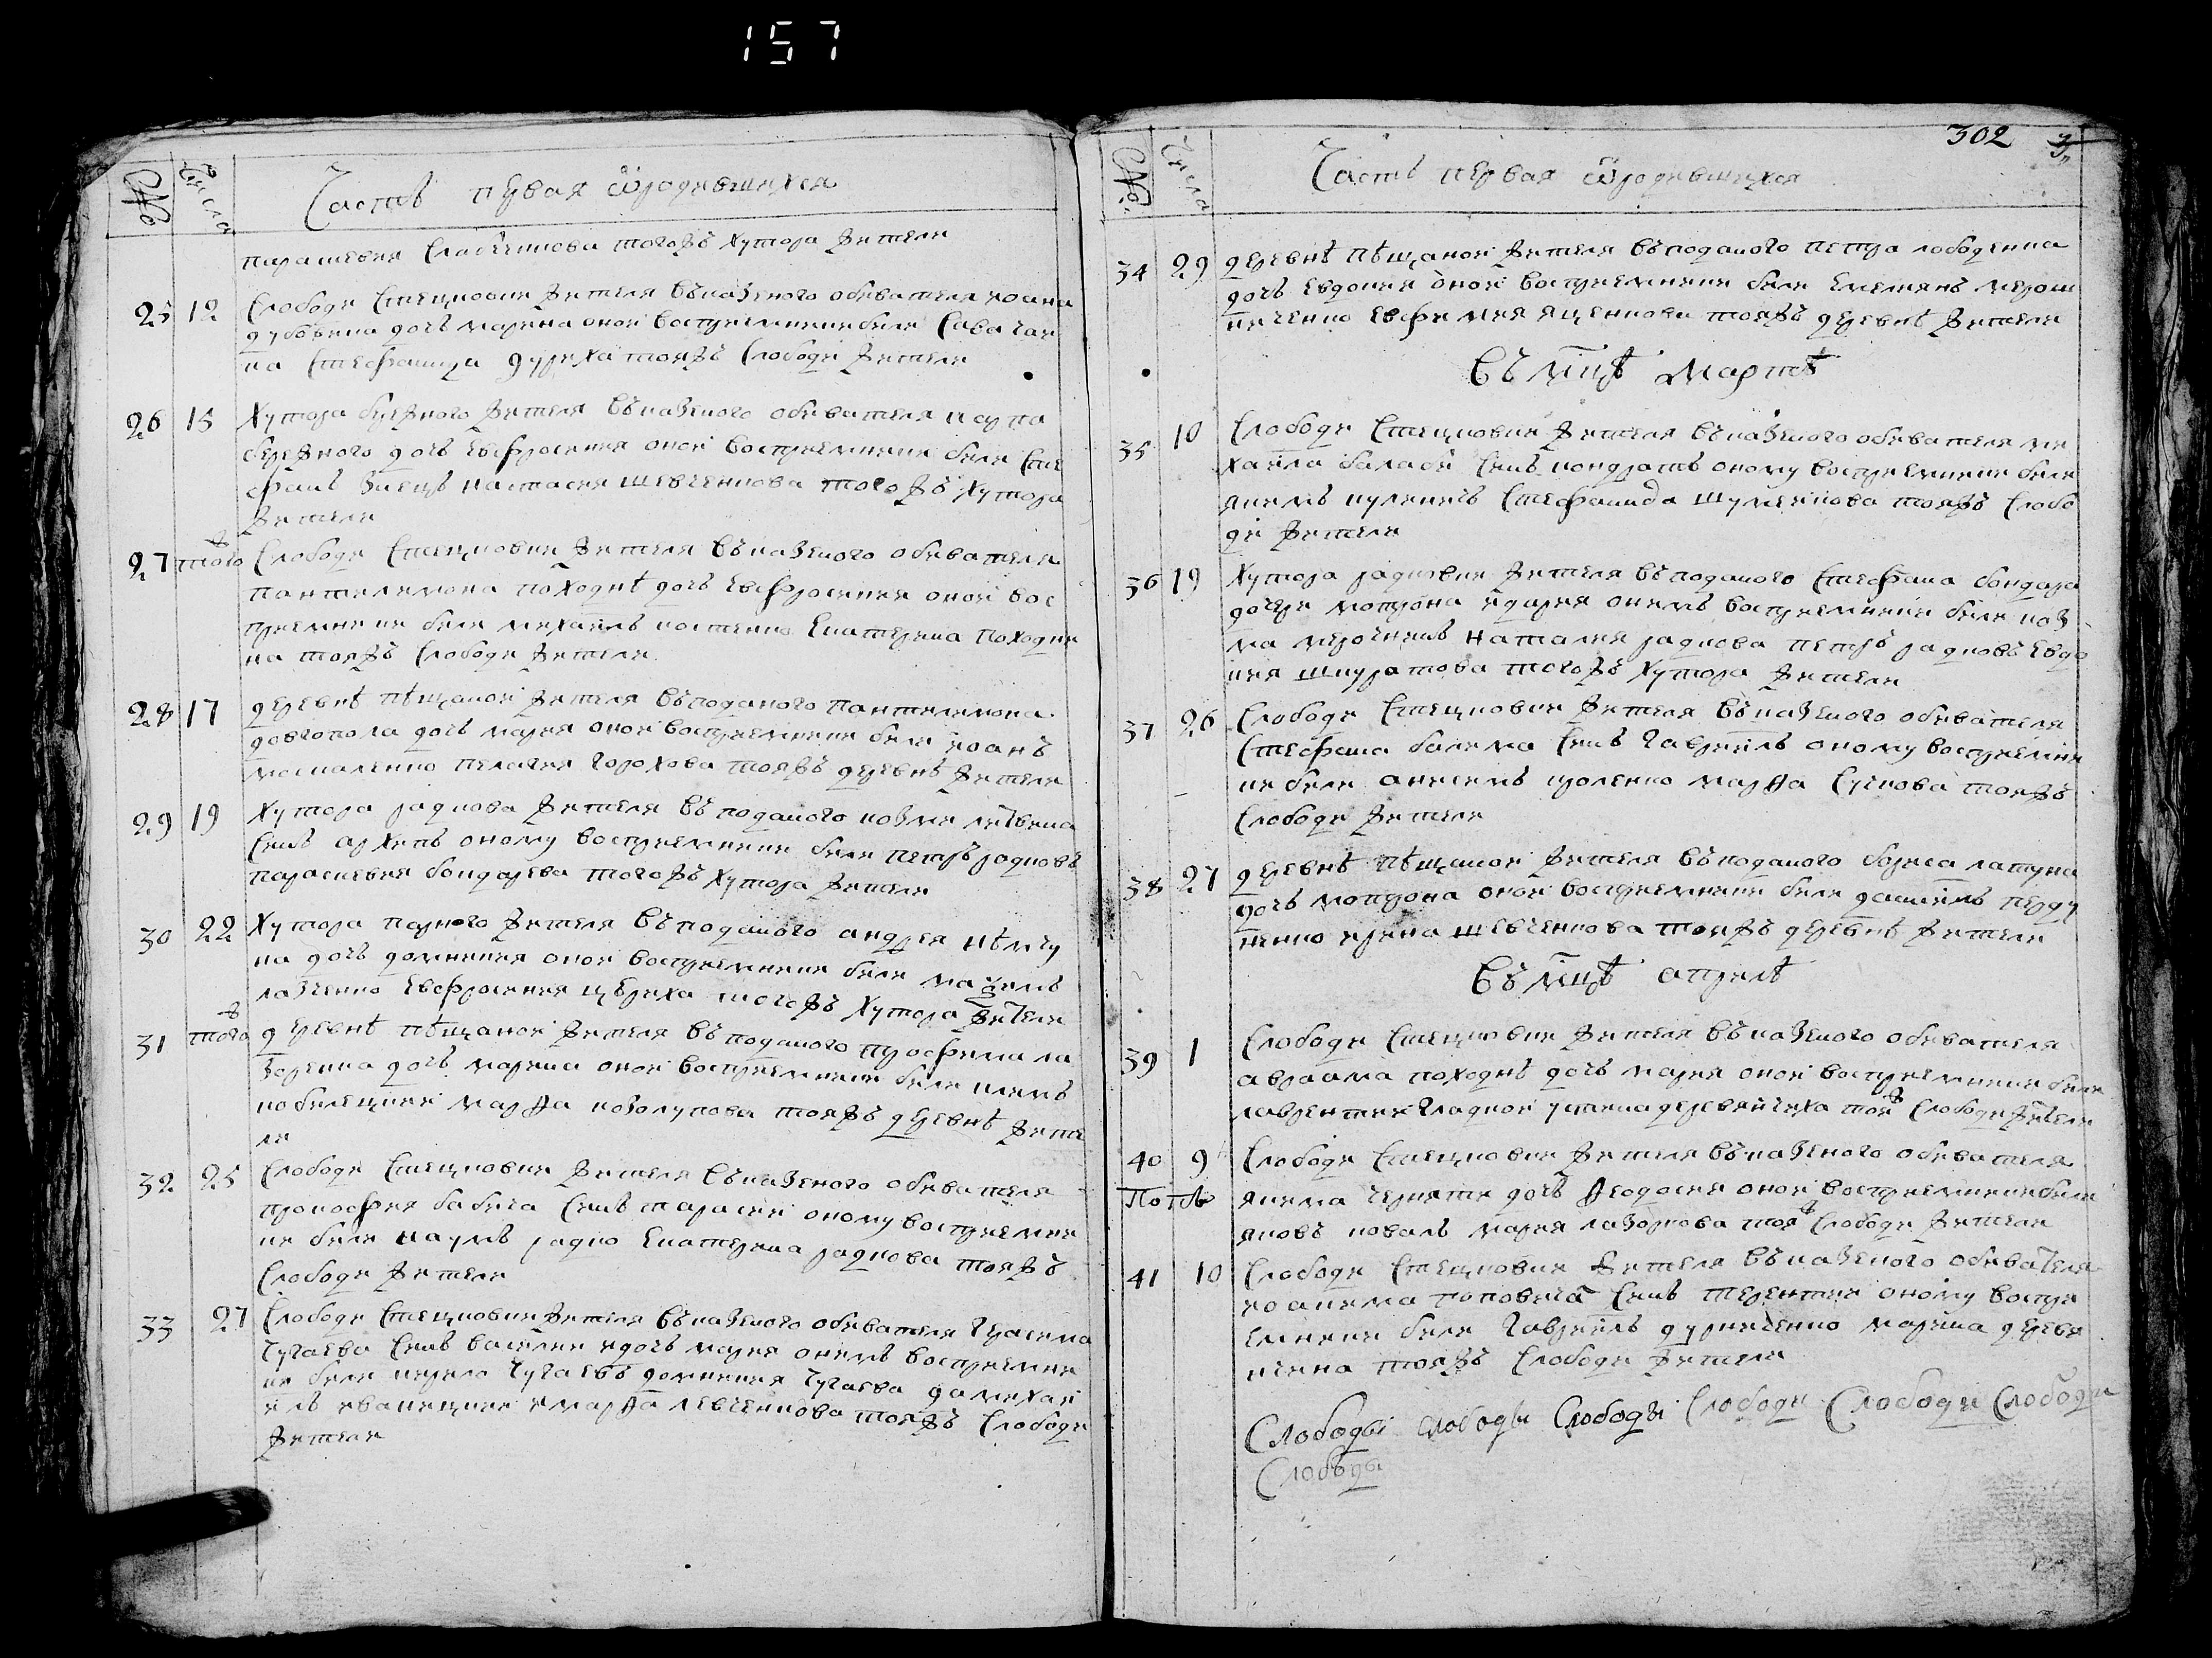 157
302
№ Числа Часть первая ѿ родившихся
парасковия Слабченкова тогожъ хутора жители
25 12 Слободи Стецковки жителя въказеного обивателя иоана
дубовика дочь марина оной восприемники били Сава чай
ка Стефанида дуриха тояжъ слободи жители
26 15 Хутора бережного жителя въказеного обивателя карпа
бережного дочь Евфросиния оной восприемники били Сте
фанъ Заецъ настасия шевченкова тогожъ хутора
жители
27 тогож Слободи Стецковки жителя въказеного обивателя
пантелимона походнѣ дочь Евфросиния оной вос
приемники били михаилъ костенко Екатерина походни
на тояжъ слободи жители
28 17 деревнѣ пѣщаной жителя въподаного пантелимона
довгопола дочь мария оной восприемники били иоанъ
москаленко пелагия горохова тояжъ деревнѣ жители
29 19 Хутора радкова жителя въподаного козми литвина
Синъ архипъ оному восприемники били петръ радковъ
параскевия бондарева тогожъ хутора жители
30 22 Хутора парного жителя въподаного андрея нѣмчу
на дочь домникия оной восприемники били
лазченко Евфросиния тогожъ хутора жители
31 тогож деревнѣ пѣщаной жителя въподаного прокофия ла
зоренка дочь марина оной восприемники били климъ
кобилецкий марѳа козолупова тояжъ деревнѣ жите
ли
32 25 Слободи Стецковки жителя въказеного обивателя
прокофия бабича Синъ тарасий оному восприемни
ки били наумъ радко Екатерина радкова тояжъ
Слободи жители
33 27 Слободи Стецковки жителя въказеного обивателя герасима
Чучаева Синъ василий идочь мария онимъ восприемни
ки били кирило Чучаевъ домникия Чучаева да михаи
илъ иваницкий имарѳа левченкова тояжъ Слободи
жители
№ Числа Часть первая ѿ родившихся
34 29 деревнѣ пѣщаной жителя въподаного петра лободенка
дочь Евдокия оной восприемники били Емелянъ мирош
ниченко Евфимия яценкова тояжъ деревнѣ жители
Въ мцѣ мартѣ
35 10 Слободи Стецковки жителя въказеного обивателя ми
хаила балаби Синъ кондратъ оному восприемники били
якимъ куленичъ Стефанида шумейкова тояжъ Слобо
ди жители
36 19 Хутора радковки жителя въподаного Стефана бондара
дочери мотрона идария онимъ восприемники били коз
ма мирочникъ наталия радкова петръ радковъ Евдо
кия шкуратова тогожъ хутора жители
37 26 Слободи Стецковки жителя въказеного обивателя
Стефана балема Синъ гавриилъ оному восприемни
ки били анисимъ кроленко марѳа тояжъ
слободи жители
38 27 деревнѣ пѣщаной жителя въподаного бориса латука
дочь мотрона оной восприемники били даниилъ перду
ненко ирина шевченкова тояжъ деревнѣ жители
Въ мцѣ апрелѣ
39 1 Слободи Стецковки жителя въказеного обивателя
авраама походнѣ дочь мария оной восприемники били
лаврентий гладкой устина деревянчиха тояж Слободи жители
40 9 Слободи Стецковки жителя въказеного обивателя
якима черняти дочь Ѳеодосия оной восприемники били
яковъ коваль мария лазоркова тояж Слободи жители
41 10 Слободи Стецковки жителя въказеного обивателя
иоакима поповича Синъ терентий оному воспри
емники били гавриилъ дурниченко марина дереве
нчена тояжъ Слободи жители
Слободы слободы Слободы Слободи Слободи Слободи
Слободы